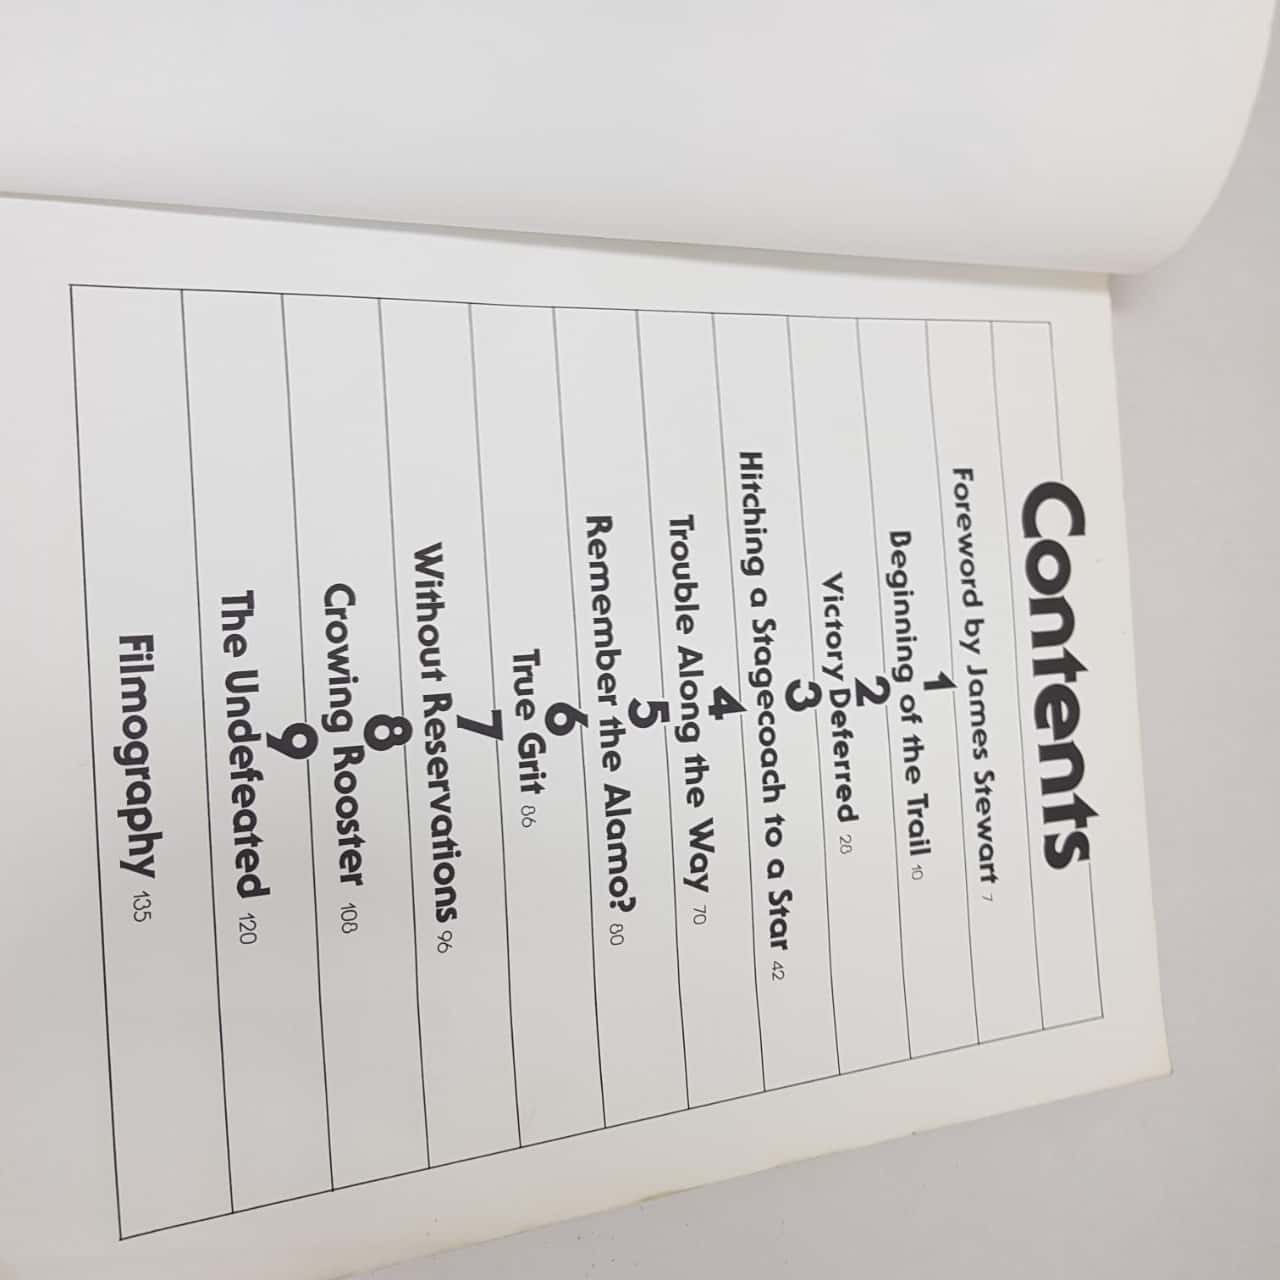 Contents
Foreword by James Stewart 7
1
Beginning of the Trail 10
2
Victory Deferred 28
3
Hitching a Stagecoach to a Star 42
4
Trouble Along the Way 70
5
Remember the Alamo? 80
6
True Grit 86
7
Without Reservations 96
8
Crowing Rooster 108
9
The Undefeated 120
Filmography 135